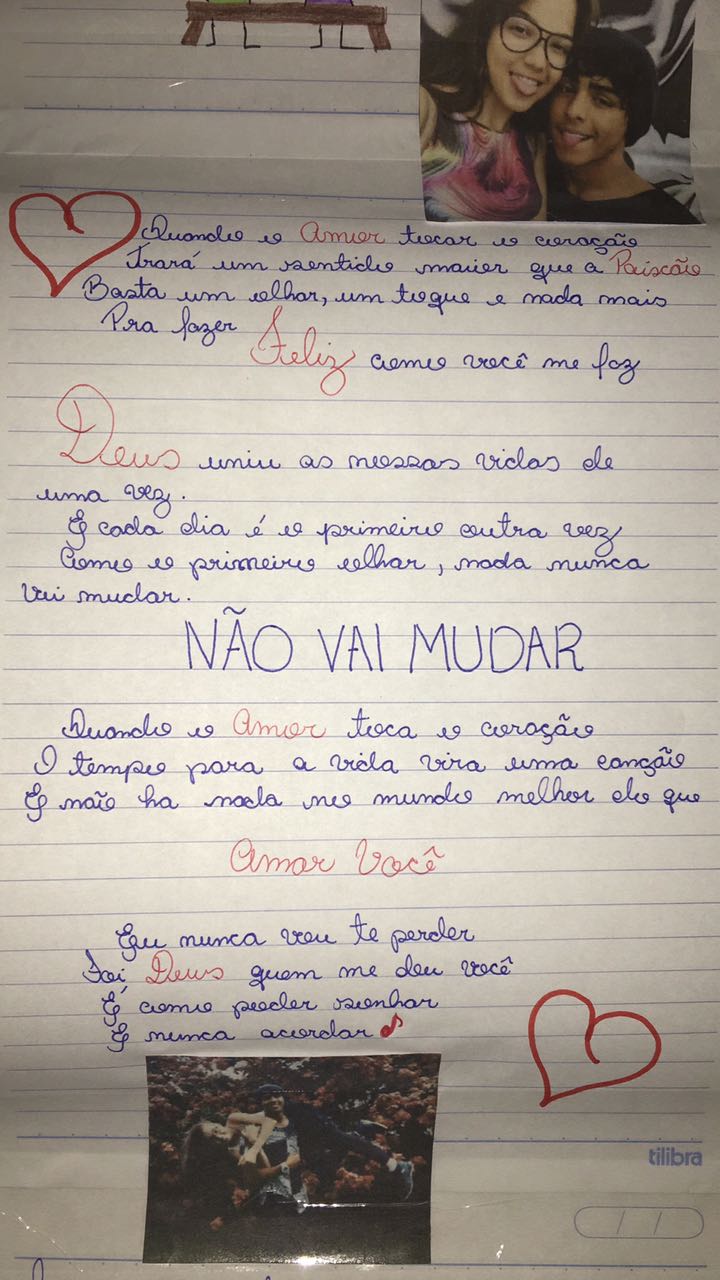 Quando o Amor tocar o coração
Trará um sentido maior que a Paixão
Basta um olhar, um toque e nada mais
Pra fazer
Feliz como você me faz
Deus uniu as nossas vidas de
uma vez.
E cada dia é o primeiro outra vez
Como o primeiro olhar, nada nunca
Vai mudar.
NÃO VAI MUDAR
Quando o Amor toca o coração
O tempo para a vida vira uma canção
E não ha nada no mundo melhor do que
Amar Você
Eu nunca vou te perder
Foi Deus quem me deu você
É como poder sonhar
E nunca acordar
tilibra
/ /